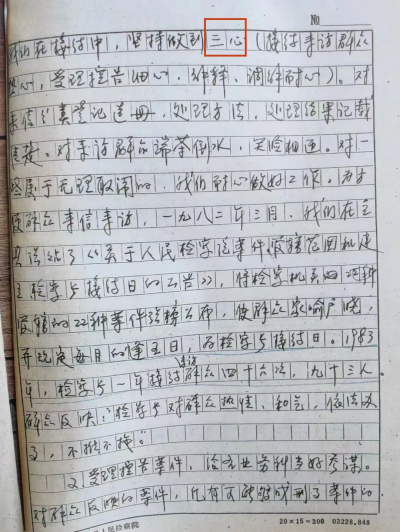 No
我们在接待中，坚持做到三心（接待来访群众
热心，受理控告细心，解释、调解耐心）。对
来信认真登记造册，处理方法，处理结果记载
清楚。对来访群众端茶倒水，笑脸相迎。对一
些属于无理取闹的，我们耐心做好工作。为方
便群众来信来访，一九八三年三月，我们在全
县张贴了《关于人民检察院案件管辖范围和建
立检察长接待日的公告》，将检察机关
管辖的22种案件张榜公布，使群众家喻户晓，
并规定每月的 五日，为检察长接待日。1983
年，检察长一年接待群众来访四十六次，九十三人。
群众反映：检察长对群众热情，和气，依法办
事，不推不拖。
2、受理控告案件，给各业务科当好参谋。
对群众反映的案件，凡有可能 刑事案件的
人民检察院
20×15=300 03228.848